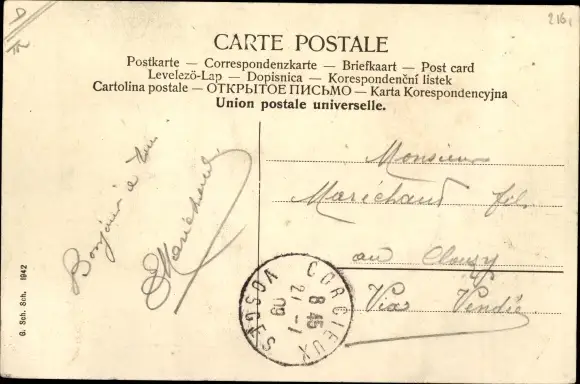 216
CARTE POSTALE
Postkarte — Correspondenzkarte — Briefkaart — Post card
Levelező-Lap — Dopisnica — Korespondenční listek
Cartolina postale — ОТКРЫТОЕ ПИСЬМО — Karta Korespondencyjna
Union postale universelle.
Bonjour à tous
Maréchaud
Monsieur
Maréchaud fils
au
Via Vendée
CORCIEUX
8 45
21 -1
09
VOSGES
G. Sch. Sch. 1942